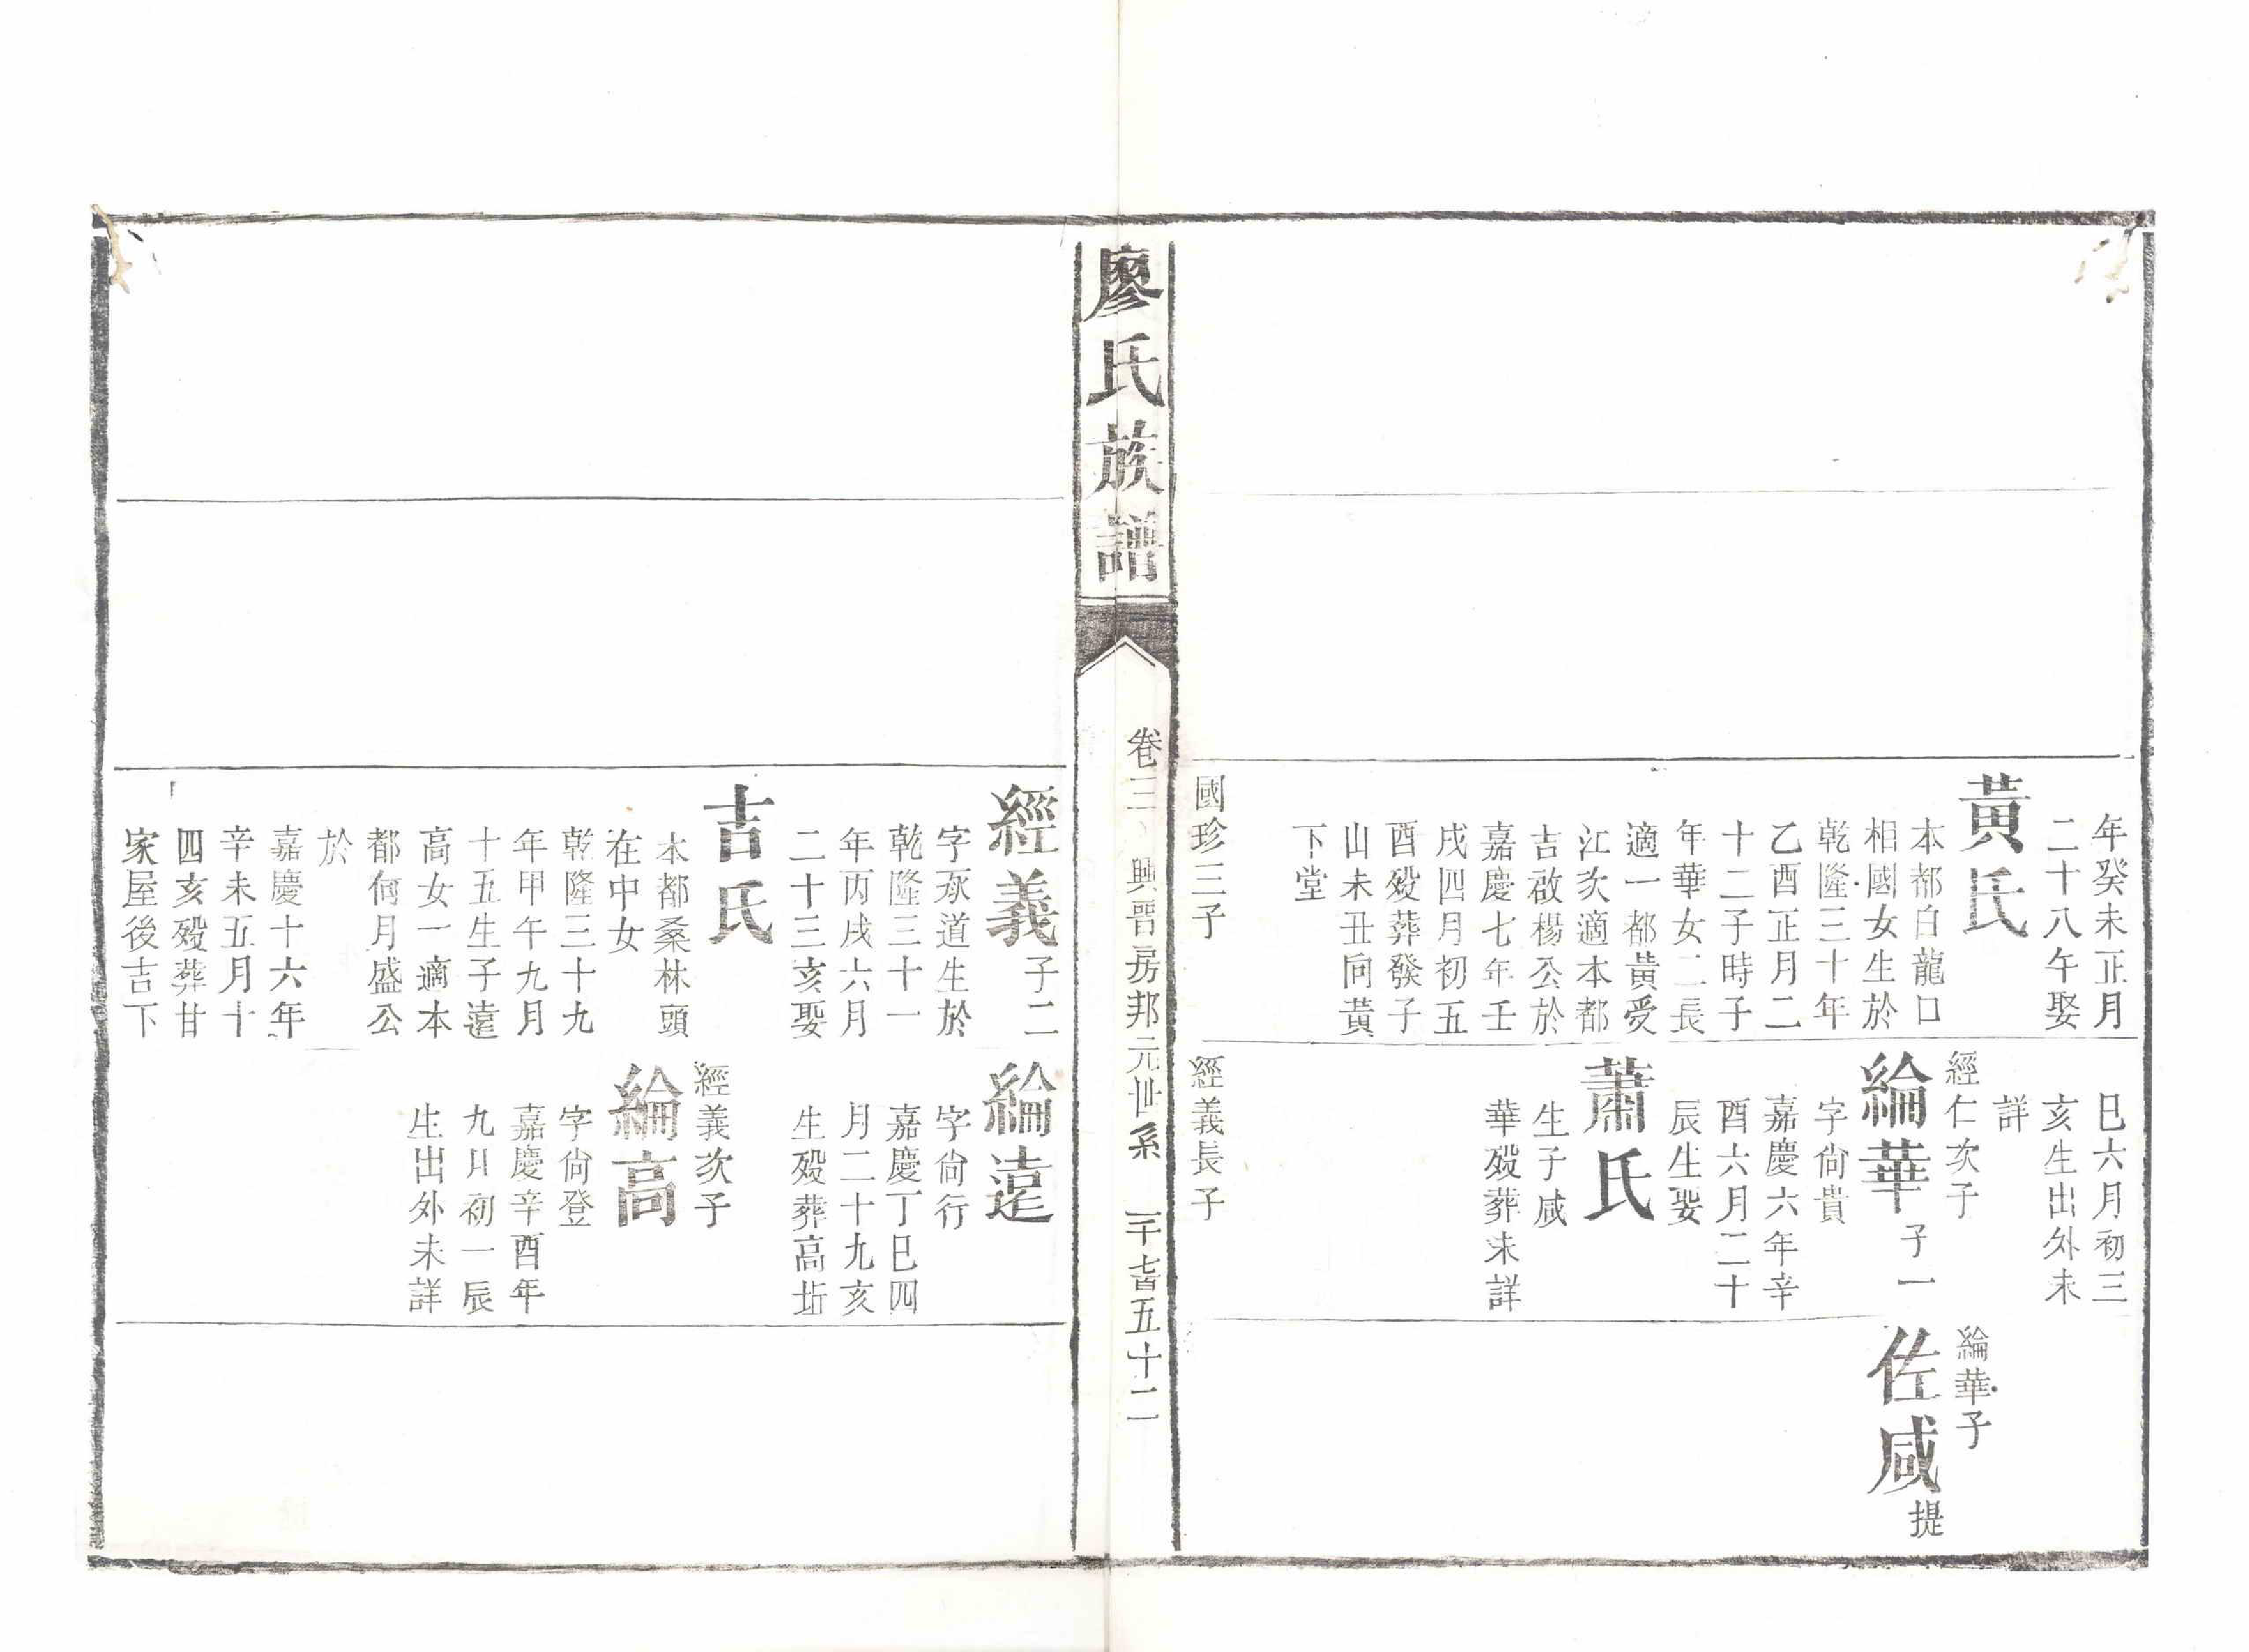 年癸未正月
二十八午娶
黃氏
本都白龍口
相國女生於
乾隆三十年
乙酉正月二
十二子時子
年華女二長
適一都黃受
江次適本都
吉啟楊公於
嘉慶七年壬
戌四月初五
酉歿葬發子
山未丑向黃
下堂
國珍三子
巳六月初三
亥生出外未
詳
經仁次子
綸華子一
字尙貴
嘉慶六年辛
酉六月二十
辰生娶
蕭氏
生子咸
華歿葬未詳
經義長子
綸華子
佐咸提
廖氏族譜
卷三
興晋房邦元世系
一千七百五十二
經義子二
字承道生於
乾隆三十一
年丙戌六月
二十三亥娶
吉氏
本都桑林頭
在中女
乾隆三十九
年甲午九月
十五生子遠
高女一適本
都何月盛公
於
嘉慶十六年
辛未五月十
四亥歿葬甘
家屋後吉下
綸遠
字尙行
嘉慶丁巳四
月二十九亥
生歿葬高坵
經義次子
綸高
字尙登
嘉慶辛酉年
九月初一辰
生出外未詳